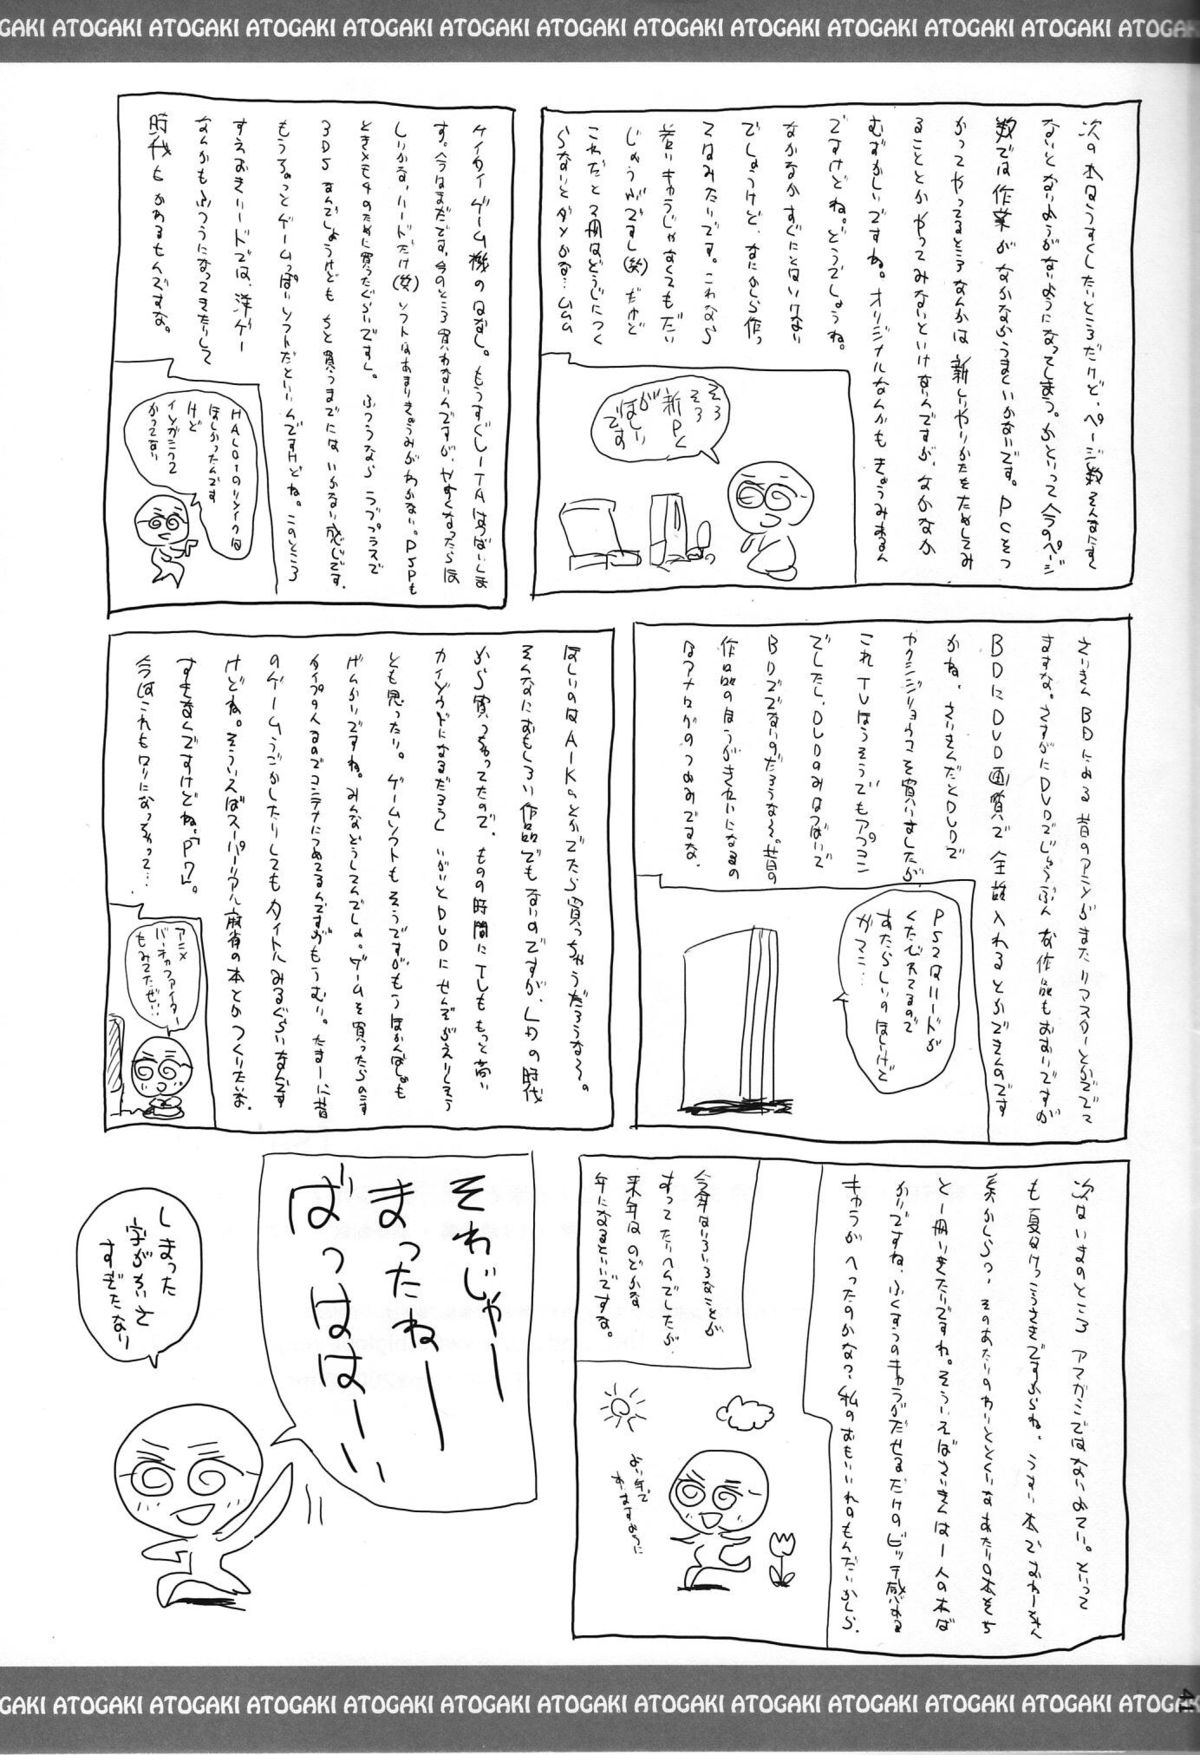 GAKI ATOGAKI ATOGAKI ATOGAKI ATOGAKI ATOGAKI ATOGAKI ATOGAKI ATOGAKI ATOGAK
次の本はうすくしたいところだけど、ページ数そんなにすく
ないとないようがないようになってしまう。かといって今のページ
数では作業がなかなかうまくいかないです。PCをつ
かってやってるところなんかは新しいやりかたをためしてみ
ることとかやってみないといけないんですが、なかなか
むずかしいですね。オリジナルなんかもきょうみあるん
ですけどね。どうでしょうね。
なかなかすぐにとはいけない
でしょうけど、なにかしら作っ
てはみたいです。これなら
若いキャラじゃなくてもだい
じょうぶですし(笑)だけど
これだと2冊はどうじにつく
らないとダメかな…ムムム
そろ
そろ
新PC
がほしい
です
ケイタイゲーム機のはなし。もうすぐVITAはつばいしま
す。今はまだです。今のところ買わないんですが、やすくなったらほ
しいかな、ハードだけ(笑)ソフトはあまりきょうみがわかない。PSPも
ときメモ4のために買ったぐらいですし。ふつうならラブプラスで
3DSなんでしょうけども ちと買うまでにはいかない感じです。
もうちょっとゲームっぽいソフトだといいんですけどね。このところ
すえおきハードでは、洋ゲー
なんかもふつうになってきたりして
時代もかわるもんですな。
HALO1のリメイクは
ほしかったんです
けど
イとガミつで
かってない
さいきんBDによる昔のアニメがまたリマスターとかででて
ますな。さすがにDVDでじゅうぶんな作品もおおいですが
BDにDVD画質で全話入れるとかできんのです
かね。さいきんだとDVDで
ヤクシジョウコを買いましたが、
これTVほうそうでもアプコン
でしたし、DVDのみはつばいで
BDででないのだろうな〜。昔の
作品のほうがきれいになるの
はアナログのつよみですな。
PS2はハードが
くたびれてるので
あたらしいのほしいけど
ガマン…
ほしいのはAIKaとかでたら買っちゃうだろうな〜。
そんなにおもしろい作品でもないのですが、LDの時代
から買っちゃってたので、ものの時間にしてももっと高い
カイゾウドになるだろうし いがいとDVDにせんぞがえりしそう
とも思ったり。ゲームソフトもそうですがもうほかんばしょも
げんかいですね。みんなどうしてんでしょ。ゲームを買ったらのこす
タイプの人なのでコンテナにつめてるんですがもうむり。たまーに昔
のゲームうごかしたりしてもタイトルみるぐらいなんです
けどね。そういえばスーパーリアル麻雀の本とかつくりたいな。
すきなんですけどね。「P7」。
今はこれもロリになっちゃって…
アニメ
バーチャファイター
もみてたぜい
次はいまのところアマガミではないよてい。といって
も夏はけっこうさきですからね。うすい本でおわーせん
系かしらっ、そのあたりのわりととくいなあたりの本をち
と一冊いきたいですね。そういえばさいきんは1人の本ば
かりですね、ふくすうのキャラがだせるだけのビッチ感ある
キャラがへったのかな?私のおもいいれのもんだいかしら。
今年はいろいろなことが
あってたいへんでしたが、
来年はのどかな
年になるといいですな。
よい年で
ありますように
それじゃー
まったねー
ばっはは〜い
しまった
字がかいと
すぎたなり
GAKI ATOGAKI ATOGAKI ATOGAKI ATOGAKI ATOGAKI ATOGAKI ATOGAKI ATOGAKI ATOGAK
41